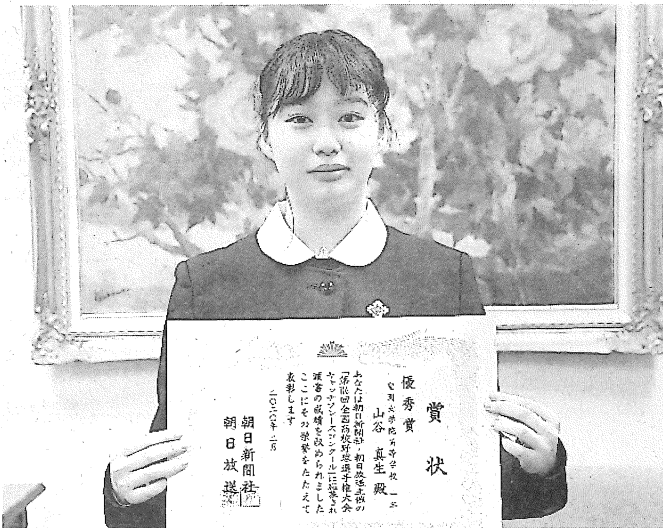 賞状
優秀賞
山谷 真生 殿
あなたは朝日新聞社・朝日放送主催の
全国高校野球選手権大会
キャッチフレーズコンクールに応募され
頭書の成績を収められました
ここにその栄誉をたたえて
表彰します
二〇二〇年二月
朝日新聞社
朝日放送